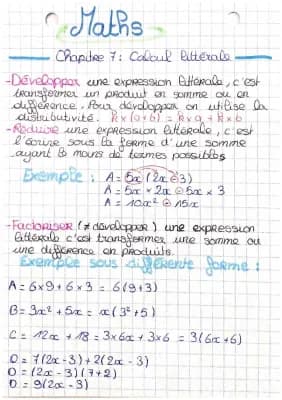 Maths
Chapitre 7 : Calcul littérale
-Développer une expression littérale, c'est
transformer un produit en somme ou en
différence. Pour développer on utilise la
distributivité. k x (a+b) = k x a + k x b
-Réduire une expression littérale, c'est
l'écrire sous la forme d'une somme
ayant le moins de termes possibles
Exemple : A = 5x (2x - 3)
A = 5x x 2x - 5x x 3
A = 10x² - 15x
-Factoriser (≠ développer) une expression
littérale c'est transformer une somme ou
une différence en produits.
Exemple sous différente forme :
A = 6x9 + 6x3 = 6(9+3)
B = 3x² + 5x = x(3²+5)
C = 12x + 18 = 3x6x + 3x6 = 3(6x+6)
D = 7(2x-3) + 2(2x-3)
D = (2x-3)(7+2)
D = 9(2x-3)